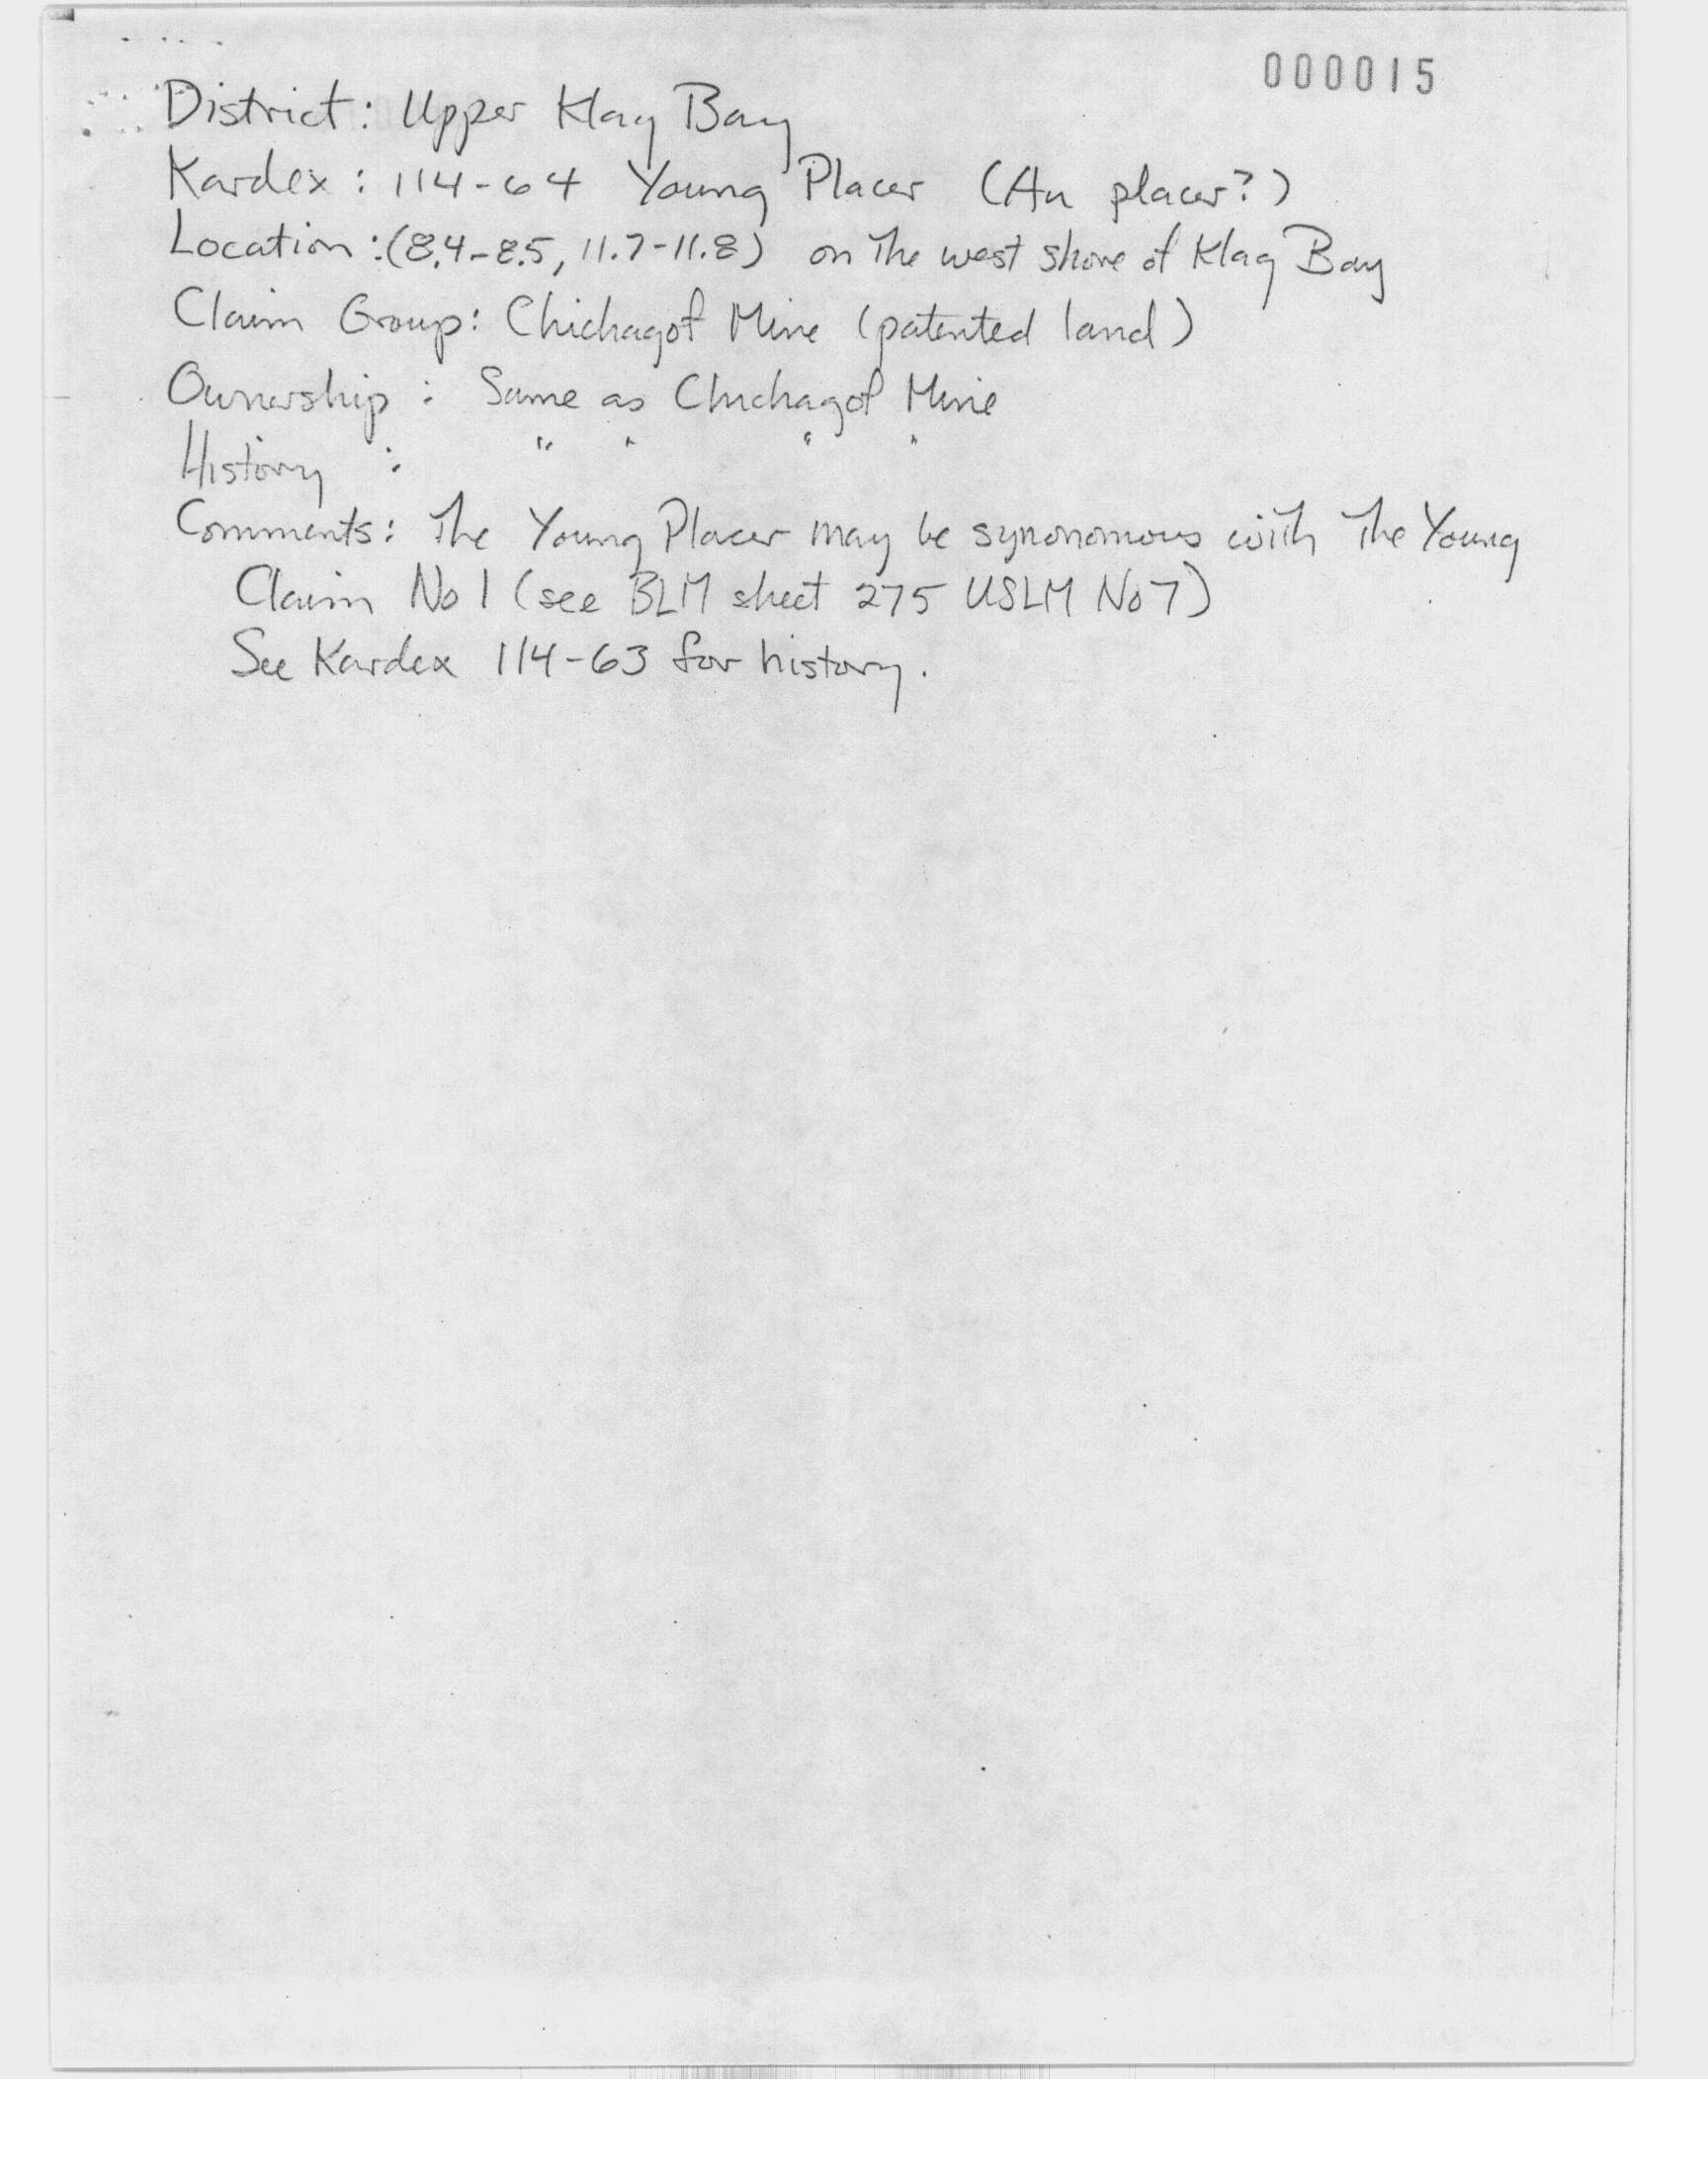 000015
District: Upper Klag Bay
Kardex: 114-64 Young Placer (Au placer?)
Location: (8.4-8.5, 11.7-11.8) on the west shore of Klag Bay
Claim Group: Chichagof Mine (patented land)
Ownership: Same as Chichagof Mine
History: " " " "
Comments: The Young Placer may be synonomous with the Young
Claim No 1 (see BLM sheet 275 USLM No 7)
See Kardex 114-63 for history.